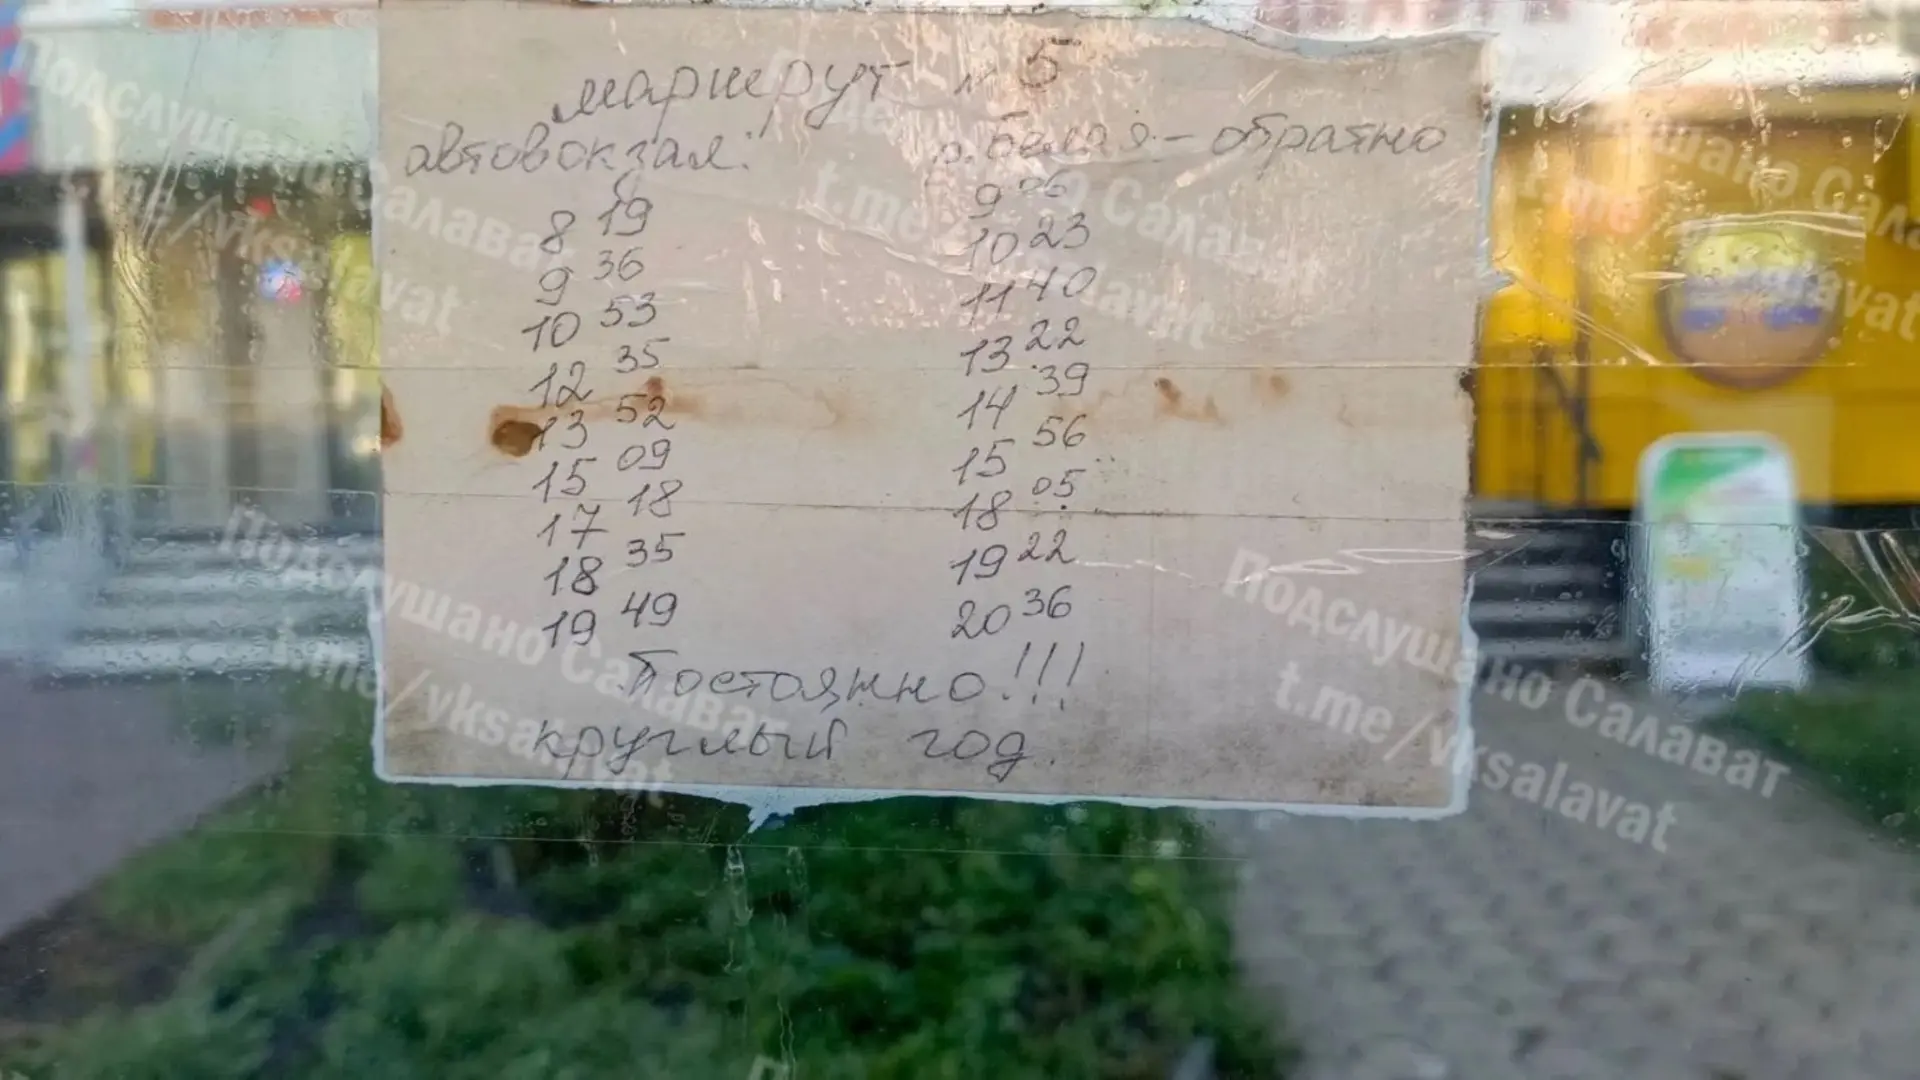 маршрут № 5
автовокзал: р. Белая – обратно
8 19 9 06
9 36 10 23
10 53 11 40
12 35 13 22
13 52 14 39
15 09 15 56
17 18 18 05
18 35 19 22
19 49 20 36
Постоянно!!!
круглый год.
Подслушано Салават
t.me/vksalavat
Подслушано Салават
t.me/vksalavat
Подслушано Салават
t.me/vksalavat
Подслушано Салават
t.me/vksalavat